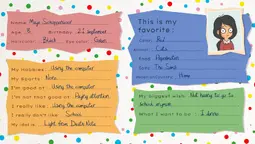 Name: Maja
Age: 11 Birthday: 22 september
Haircolor: Black Eye color: Green
My Hobbies: Using the computer
My sports: None
I'm good at: Using the computer
I'm not that good at: Paying attention
I really like: Using the computer
I really don't like: School
My idol is: Light from Death Note
This is my
favorite:
Color: Red
Animal: Cats
Food:
Game: The Sims
Home
My biggest wish: Not having to go to
school anymore
What I want to be: I dunno